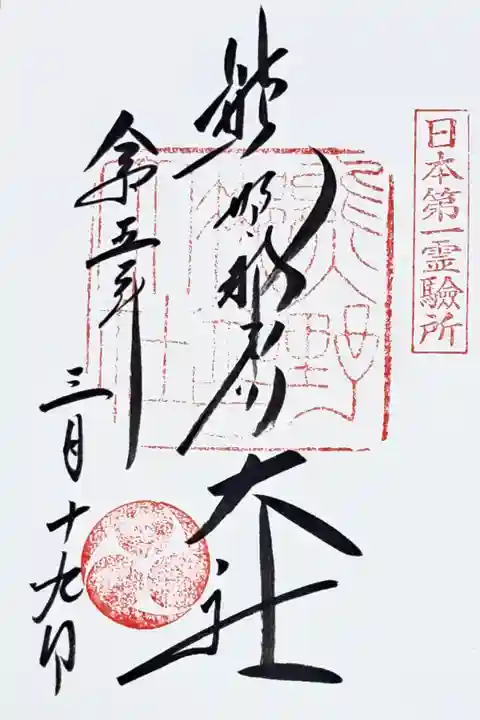 日本第一霊驗所
熊野那智大社
令和五年
三月十九日